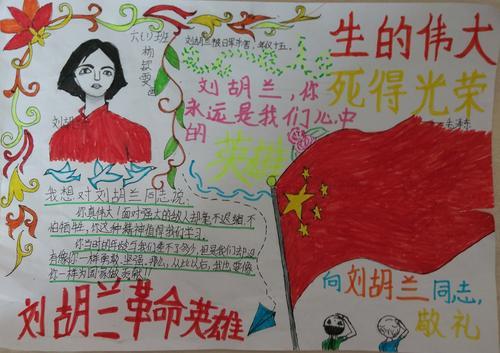 六(1)班
杨
雯
刘胡
刘胡兰
生的伟大
死得光荣
毛泽东
刘胡兰,你
永远是我们心中
的
英雄
我想对刘胡兰同志说:
你真伟大!面对强大的敌人却毫不退缩,不
怕牺牲,你这种精神值得我们学习。
你当时的年龄与我们差不了多少,但是我们却没
有像你一样勇敢、坚强。那么,从此以后,我也要像
你一样为国家做贡献!!
刘胡兰革命英雄
向刘胡兰同志,
敬礼